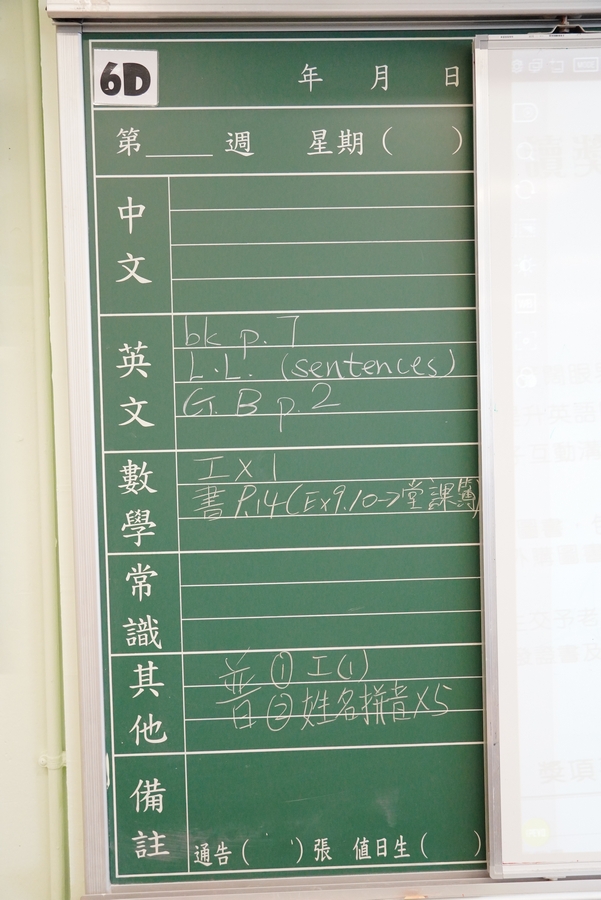 6D
年 月 日
第____週 星期( )
中文
英文
bk p. 7
L.L. (sentences)
G.B p.2
數學
工 X 1
書 P.14 (Ex9.10->堂課簿)
常識
其他
普 ① 工(1)
② 姓名拼音X5
備註
通告( )張 值日生( )
英項